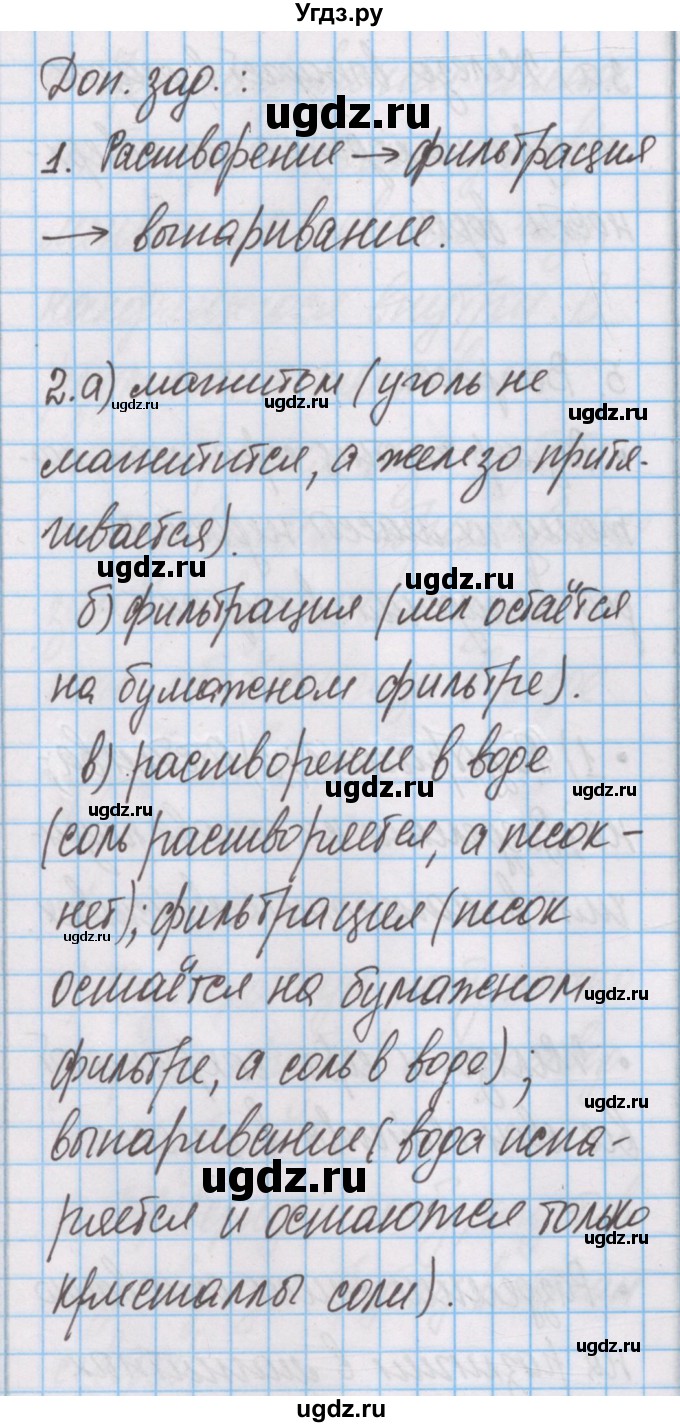 Угдз.ру
Доп. зад.:
ugdz.ru
1. Растворение → фильтрация
→ выпаривание.
2. а) магнитом (уголь не
ugdz.ru ugdz.ru ugdz.ru
магнитится, а железо притя-
гивается).
ugdz.ru ugdz.ru
б) фильтрация (мел остаётся
на бумажном фильтре).
в) растворение в воде
ugdz.ru ugdz.ru ugdz.ru
(соль растворяется, а песок -
нет); фильтрация (песок
ugdz.ru
остаётся на бумажном
ugdz.ru
фильтре, а соль в воде);
ugdz.ru
выпаривание (вода испа-
ugdz.ru
ряется и остаются только
ugdz.ru
кристаллы соли).
ugdz.ru
Угдз.ру